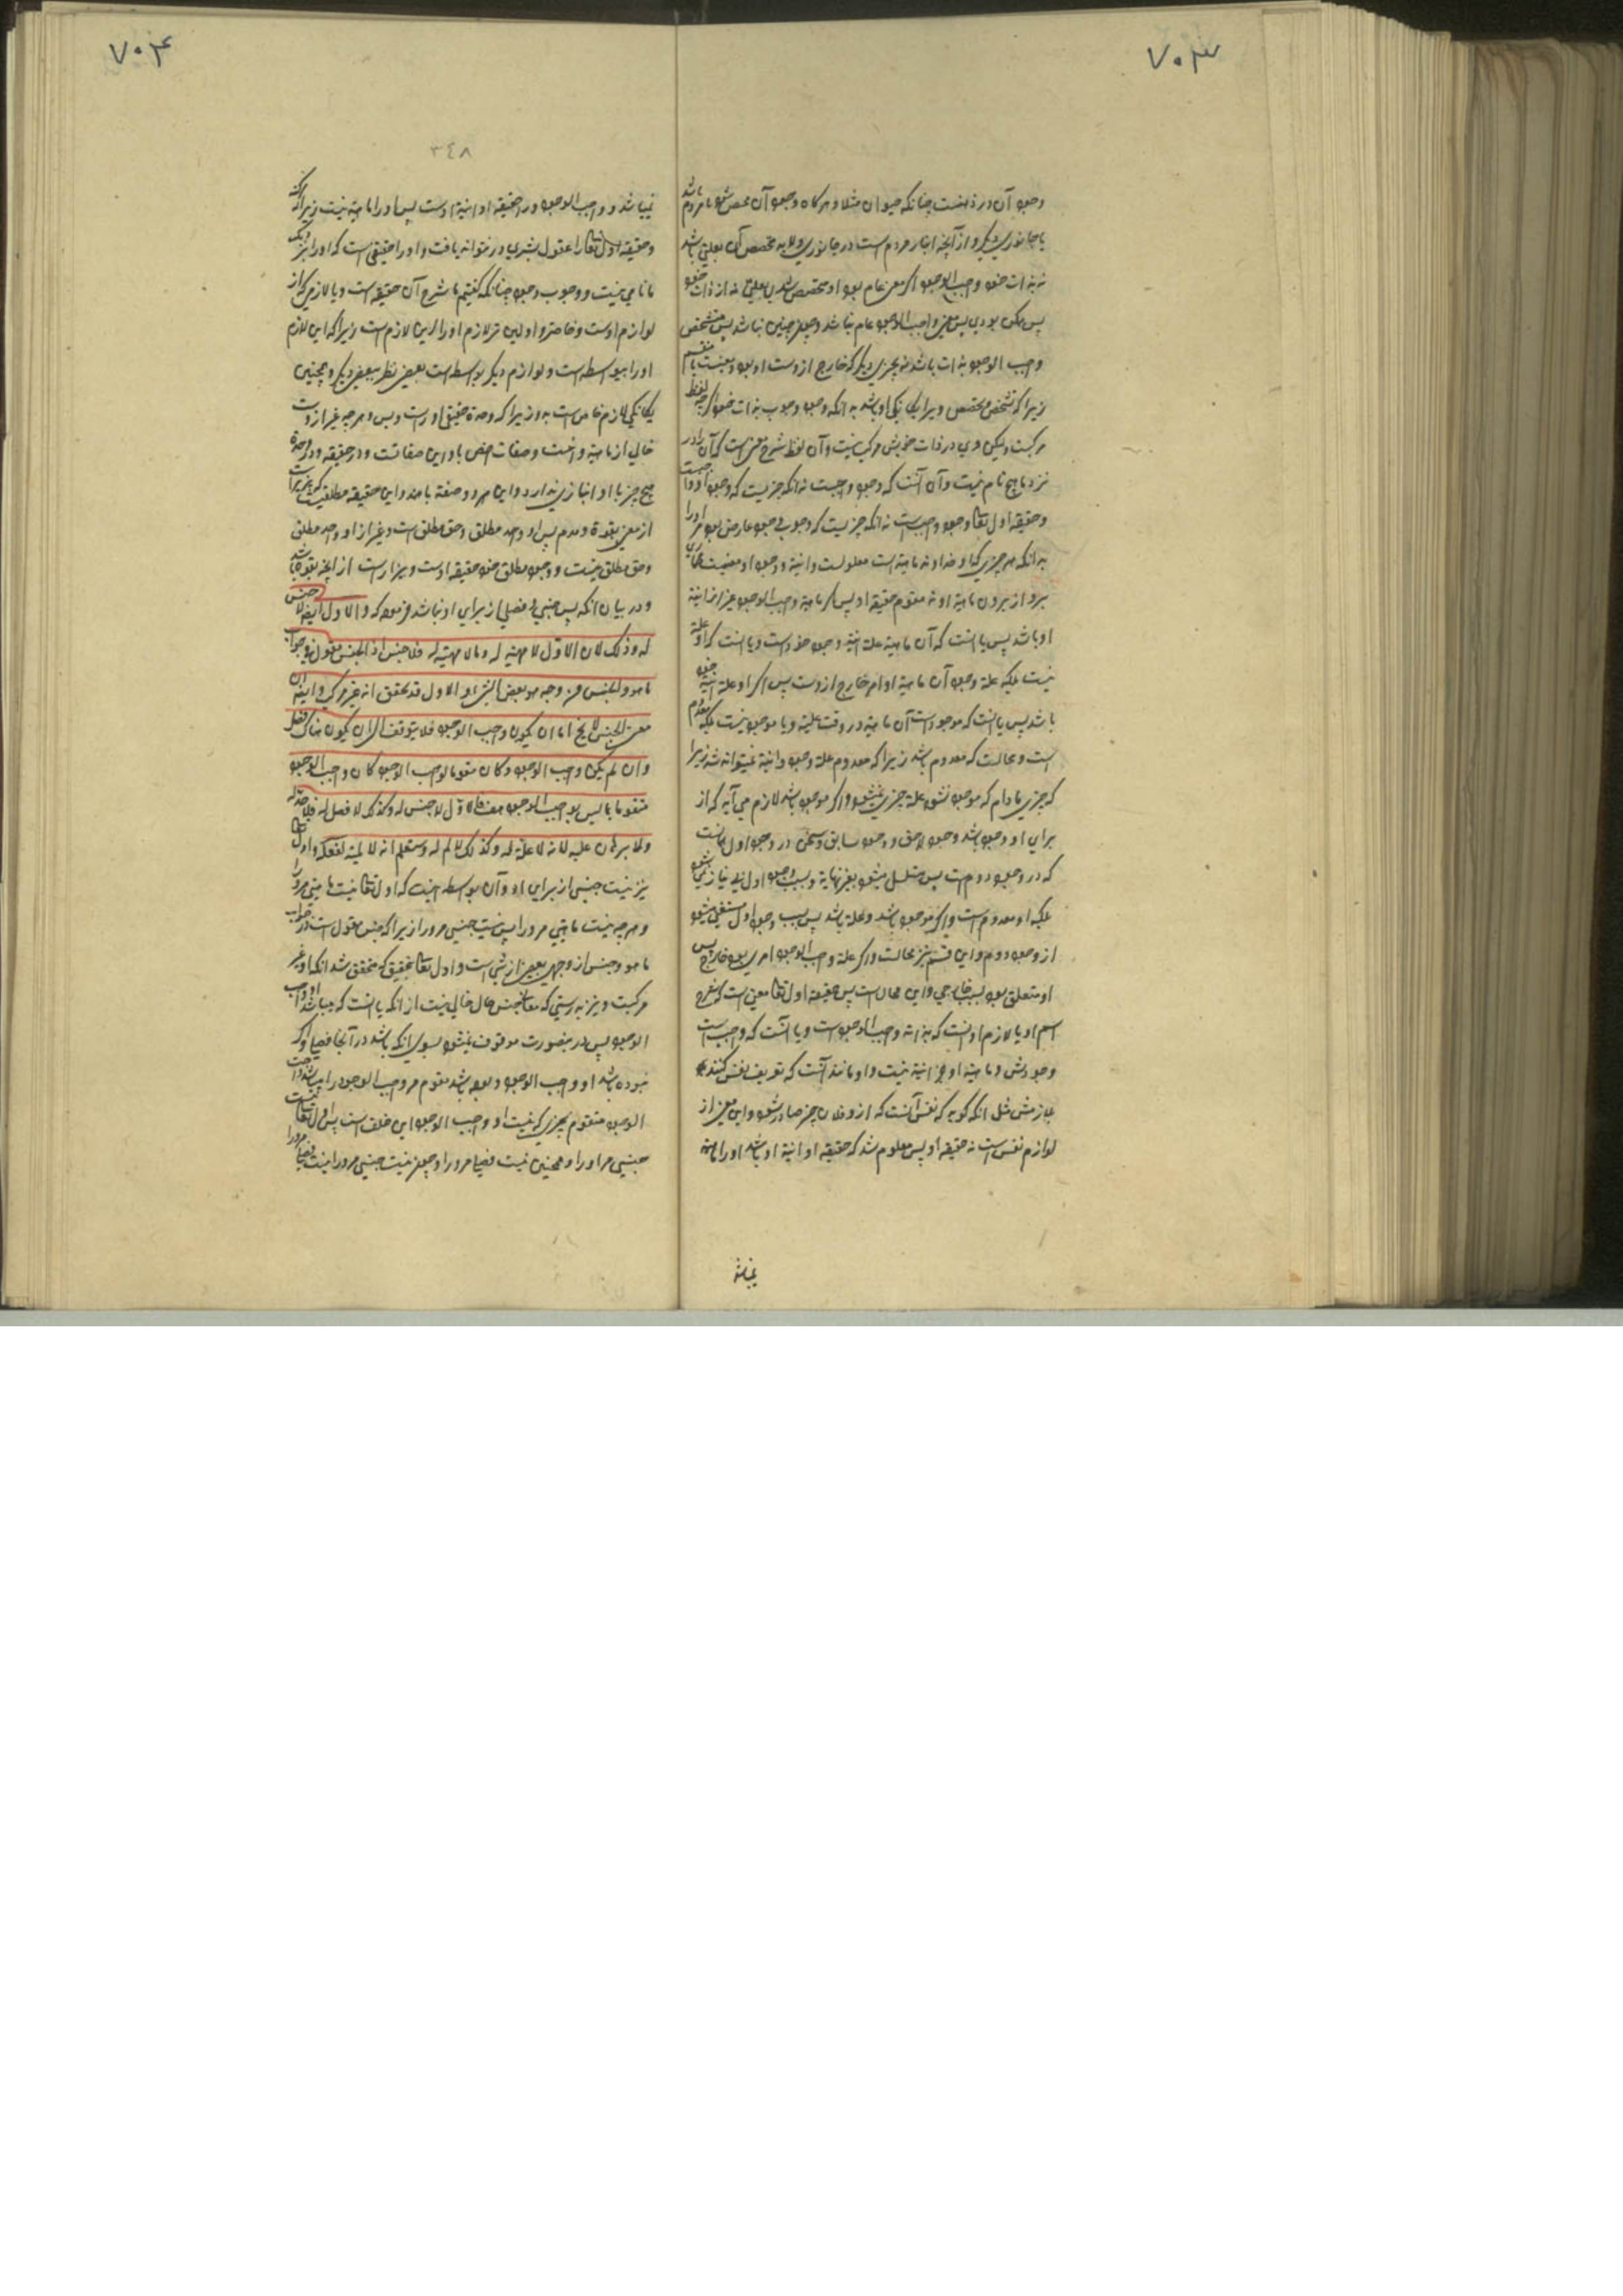 ۷۰۳
وجود آن در ذهنست چنانکه حیوان مثلا و هرکاه وجود آن محصل شود یا مردم باشد
یا جانوری دیکر و از آنچه انبار مردم است در جانوری ولابد مخصص آن بعلتی باشد
نه بذات خود و واجب الوجود اکر معنی عام بود او متخصص شدی بعلتی نه از ذات خود
پس ممکن بودی پس معنی واجب الوجود عام نباشد و چون چنین نباشد پس متشخص
واجب الوجود بذات باشد نه بچیزی دیکر که خارج از وست او بود و نیست منقسم
زیرا که تشخص و تخصص ویرا یکانکی او باشد به آنکه وجود وجوب بذات خود اکرچه لفظ
مرکبست ولیکن وی در ذات خویش مرکب نیست و آن لفظ شرح معنی است که آن را در
نزد ما هیچ نام نیست و آن آنست که وجود واجبست نه آنکه چیزیست که وجود او واجبست
و حقیقه اول تعالی وجود واجب است نه آنکه چیزیست که وجوب وجود عارض بود مر او را
به آنکه هر چیزی که او خداوند ماهیة است معلولست و انیة و وجود او معنیست طاری
برو از بیرون ماهیة او نه مقوم حقیقه او پس اکر ماهیة واجب الوجود غیر از انیة
او باشد پس یا آنست که آن ماهیة علة انیة وجود خود است و یا آنست که او علة
نیست بلکه علة وجود آن ماهیة او امر خارج از وست پس اکر او علة انیة خود
باشد پس یا آنست که موجود است آن ماهیة در وقت علیة و یا موجود نیست بلکه معدوم
است و محالست که معدوم باشد زیرا که معدوم علة وجود و انیة نمیتواند شد زیرا
که چیزی مادام که موجود نشود علة چیزی نمیشود و اکر موجود باشد لازم می آید که از
برای او وجود باشد وجود لاحق و وجود سابق و سخن در وجود اول آنست
که در وجود دوم است پس متسلسل میشود بغیر نهایة و بسبب وجود اول بی نیاز میشود
بلکه او معدوم است و اکر موجود باشد و علة باشد پس بسبب وجود اول مستغنی میشود
از وجود دوم و این قسم نیز محالست و اکر علة واجب الوجود امری بود خارج پس
او متعلق بود بسبب خارجی و این محال است پس حقیقة اول تعالی معنی است که شرح
اسم او یا لازم اوست که بذاته واجب الوجود است و یا آنست که واجب است
وجودش و ماهیة او جز انیة نیست و او مانند آنست که تعریف نفس کنند
بلازمش مثل آنکه کوید که نفس آنست که از و فلان چیز صادر شود و این معنی از
لوازم نفس است نه حقیقه او پس معلوم شد که حقیقه او انیة او باشد او را ماهیة
۷۰۴
۳٤۸
نمیباشد و واجب الوجود را حقیقه او انیة اوست پس او را ماهیة نیست زیرا که
و حقیقه اول تعالی را عقول بشری در نتواند یافت و او را حقیقتی است که او را نزدیک
ما نامی نیست و وجوب وجود چنانکه کفتیم یا شرح آن حقیقه است و یا لازمی که از
لوازم اوست و خاصتر و اولین تر لازم او را این لازم است زیرا که این لازم
او را بیواسطه است و لوازم دیکر بواسطه است بعضی نظر ببعضی دیکر و همچنین
یکانکی لازم خاص است به و زیرا که وحدة حقیقی او راست و بس و هرچه غیر از وست
خالی از ماهیة و انیت و صفات اخص با و این صفاتست و در حقیقه و در وحدة
هیچ چیز با او انبازی ندارد و این هر دو صفة با هم و این حقیقه مطلق است که نمی آمیزد
از معنی بقوة و عدم پس او واحد مطلق و حق مطلق است و غیر از او واحد مطلق
و حق مطلق نیست و وجود مطلق خود حقیقه اوست و بیزار است از آنچه بقوة باشد
و در بیان آنکه پس جنسی و فصلی از برای او نباشد فرموده که و الاول ایضا لا جنس
له و ذلک لان الاول لا مهیة له و ما لا مهیة له فلا جنس اذ الجنس مقول فی جواب
ما هو و الجنس من وجه هو بعض الشئ و الاول قد تحقق انه غیر مرکب و ایضا ان
معنی الجنس لا یخ اما ان یکون واجب الوجود فلا یتوقف الی ان یکون هناک فصل
و ان لم یکن واجب الوجود و کان مقوما لواجب الوجود کان واجب الوجود
متقوما بما لیس بواجب الوجود هف فالاول لا جنس له و کذلک لا فصل له فلا حد له
و لا برهان علیه لانه لا علة له و کذلک لا لم له و ستعلم انه لا لمیة لفعله و اول تعالی
نیز نیست جنسی از برای او و آن بواسطه اینست که اول تعالی نیست ماهیتی مرورا
و هرچه نیست ماهیتی مرورا پس نیست جنسی مرورا زیرا که جنس مقول است در جواب
ما هو و جنس از وجهی بعضی از شئ است و اول تعالی بتحقیق که متحقق شد آنکه او غیر
مرکبست و نیز بدرستی که معنی جنس حال خالی نیست از آنکه یا آنست که میباشد او واجب
الوجود پس در ینصورت موقوف نمیشود بسوی آنکه باشد در آنجا فصلی و اکر
نبوده باشد او واجب الوجود و بوده باشد مقوم مر واجب الوجود را میباشد واجب
الوجود متقوم بچیزی که نیست او واجب الوجود این خلف است پس اول تعالی نیست
جنسی مر او را و همچنین نیست فصلی مرورا و چون نیست جنسی مرورا نیست فصلی مرورا